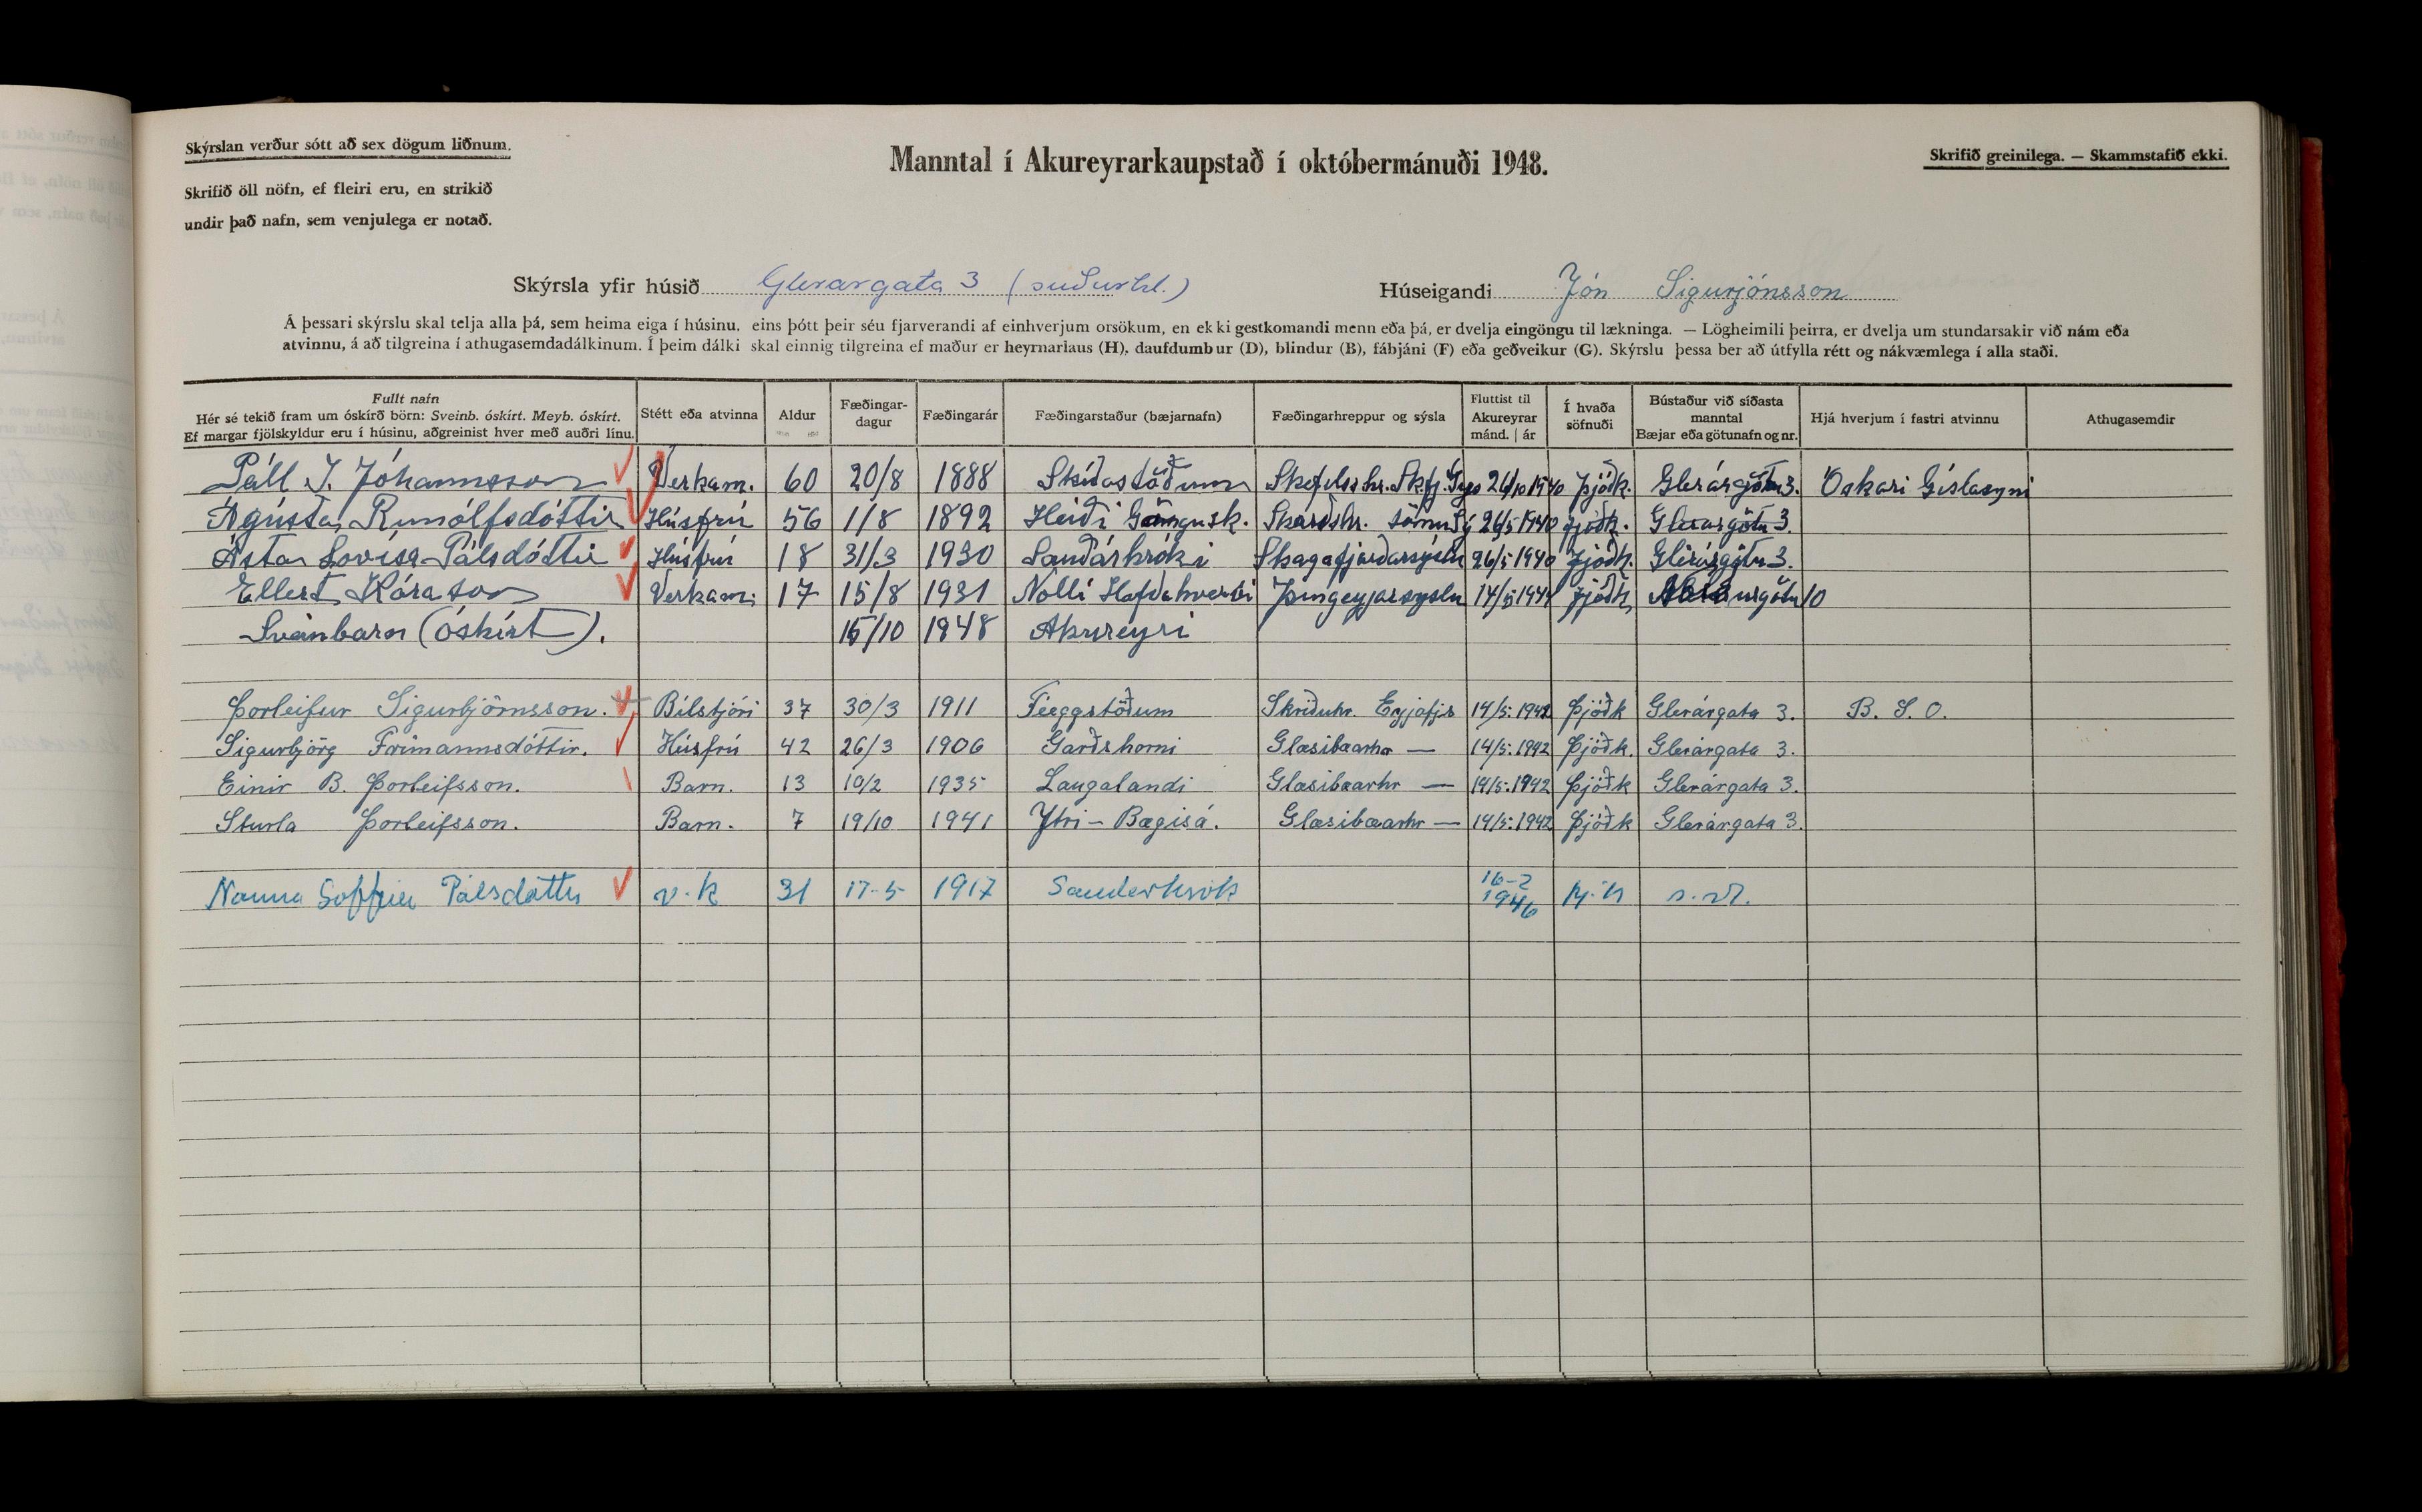 Skýrslan verður sótt að sex dögum liðnum.
Skrifið öll nöfn, ef fleiri eru, en strikið
undir það nafn, sem venjulega er notað.
Manntal í Akureyrarkaupstað í októbermánuði 1948.
Skrifið greinilega. — Skammstafið ekki.
Skýrsla yfir húsið Glerargata 3 (suðurhl.) Húseigandi Jón Sigurjónsson
Á þessari skýrslu skal telja alla þá, sem heima eiga í húsinu, eins þótt þeir séu fjarverandi af einhverjum orsökum, en ekki gestkomandi menn eða þá, er dvelja eingöngu til lækninga. — Lögheimili þeirra, er dvelja um stundarsakir við nám eða
atvinnu, á að tilgreina í athugasemdadálkinum. Í þeim dálki skal einnig tilgreina ef maður er heyrnarlaus (H), daufdumbur (D), blindur (B), fábjáni (F) eða geðveikur (G). Skýrslu þessa ber að útfylla rétt og nákvæmlega í alla staði.
Fullt nafn
Hér sé tekið fram um óskírð börn: Sveinb. óskírt. Meyb. óskírt.
Ef margar fjölskyldur eru í húsinu, aðgreinist hver með auðri línu.
Stétt eða atvinna
Aldur
Fæðingar-
dagur
Fæðingarár
Fæðingarstaður (bæjarnafn)
Fæðingarhreppur og sýsla
Fluttist til
Akureyrar
mánd. | ár
Í hvaða
söfnuði
Bústaður við síðasta
manntal
Bæjar eða götunafn og nr.
Hjá hverjum í fastri atvinnu
Athugasemdir
Páll J. Jóhannsson Verkam. 60 20/8 1888 Skíðastöðum Skefilsshr. 1940 Þjóðk. Glerárgötu 3. Óskari Gíslasyni
Ágústa Runólfsdóttir Húsfrú 56 1/8 1892 Heiði Göngusk. Skarðshr. sömu sý 26/5 1940 þjóðk. Glerargötu 3.
Ásta Lovísa Pálsdóttir Húsfrú 18 31/3 1930 Sauðárkróki Skagafjarðarsýslu 26/5 1940 Þjóðk. Glerárgötu 3.
Ellert Kárason Verkam. 17 15/8 1931 Nolli Höfðahverfi Þingeyjarsyslu þjóðk 10
Sveinbarn (óskírt). 15/10 1948 Akureyri
Þorleifur Sigurbjörnsson. Bílstjóri 37 30/3 1911 Féeggstöðum Skriðuhr. Eyjafjs 14/5. 1942 Þjóðk Glerárgata 3. B. S. O.
Sigurbjörg Frímannsdóttir. Húsfrú 42 26/3 1906 Garðshorni Glæsibæarhr — 14/5. 1942 Þjóðk. Glerárgata 3.
Einir B. Þorleifsson. Barn. 13 10/2 1935 Laugalandi Glæsibæarhr — 14/5. 1942 Þjóðk Glerárgata 3.
Sturla Þorleifsson. Barn. 7 19/10 1941 Ytri-Bægisá. Glæsibæarhr — 14/5. 1942 Þjóðk Glerárgata 3.
Nanna Soffía Pálsdóttir v.k 31 17-5 1917 Sauderkrók 16-2 1946 þj.k